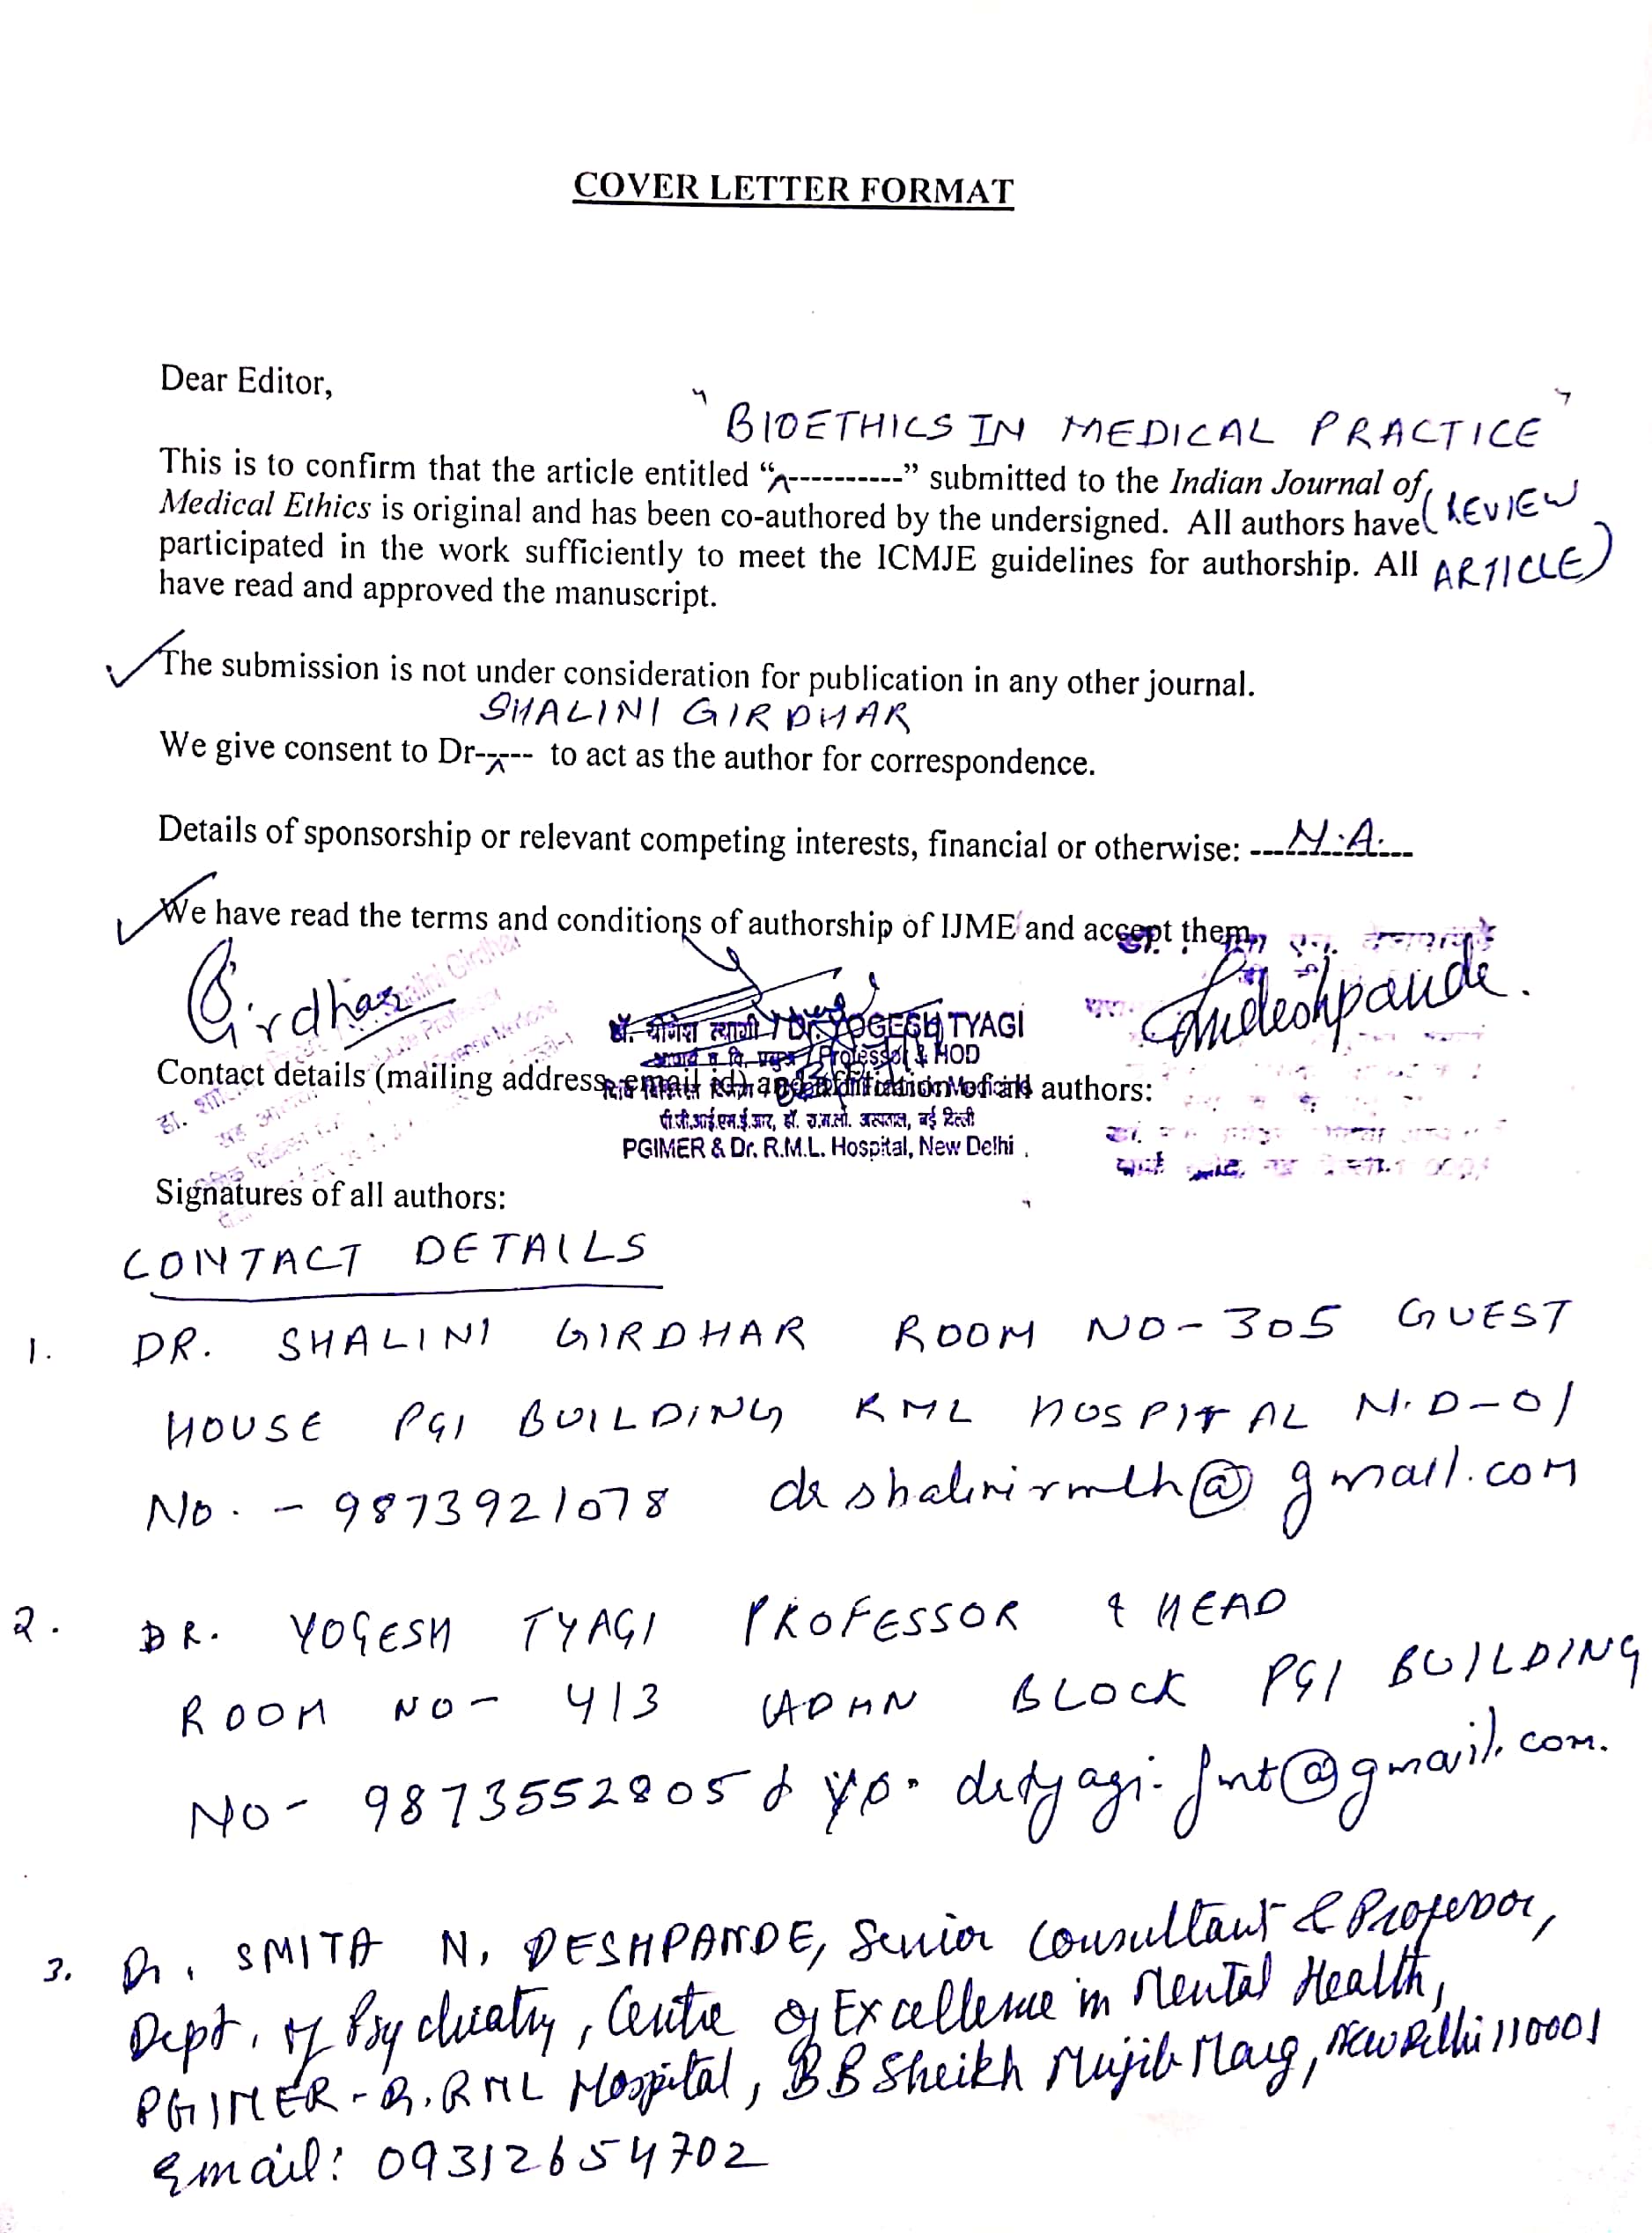 COVER LETTER FORMAT
Dear Editor,
"BIOETHICS IN MEDICAL PRACTICE"
This is to confirm that the article entitled “----------” submitted to the Indian Journal of (REVIEW
Medical Ethics is original and has been co-authored by the undersigned. All authors have
participated in the work sufficiently to meet the ICMJE guidelines for authorship. All ARTICLE)
have read and approved the manuscript.
The submission is not under consideration for publication in any other journal.
SHALINI GIRDHAR
We give consent to Dr----- to act as the author for correspondence.
Details of sponsorship or relevant competing interests, financial or otherwise: ---N.A.---
We have read the terms and conditions of authorship of IJME and accept them.
Girdhar
Smdeshpande.
डॉ. योगेश त्यागी / Dr. YOGESH TYAGI
Professor & HOD
Contact details (mailing address, email id) and affiliation of all authors:
पी.जी.आई.एम.ई.आर, डॉ. रा.म.लो. अस्पताल, नई दिल्ली
PGIMER & Dr. R.M.L. Hospital, New Delhi
Signatures of all authors:
CONTACT DETAILS
1. DR. SHALINI GIRDHAR ROOM NO-305 GUEST
HOUSE PGI BUILDING RML HOSPITAL N.D-01
No. - 9873921078 drshalinirmlh@gmail.com
2. DR. YOGESH TYAGI PROFESSOR & HEAD
ROOM NO- 413 ADMN BLOCK PGI BUILDING
No- 9873552805 drtyagi.fmt@gmail.com.
3. Dr. SMITA N. DESHPANDE, Senior Consultant & Professor,
Dept. of Psychiatry, Centre of Excellence in Mental Health,
PGIMER-Dr. RML Hospital, BB Sheikh Mujib Marg, New Delhi 110001
Email: 09312654702